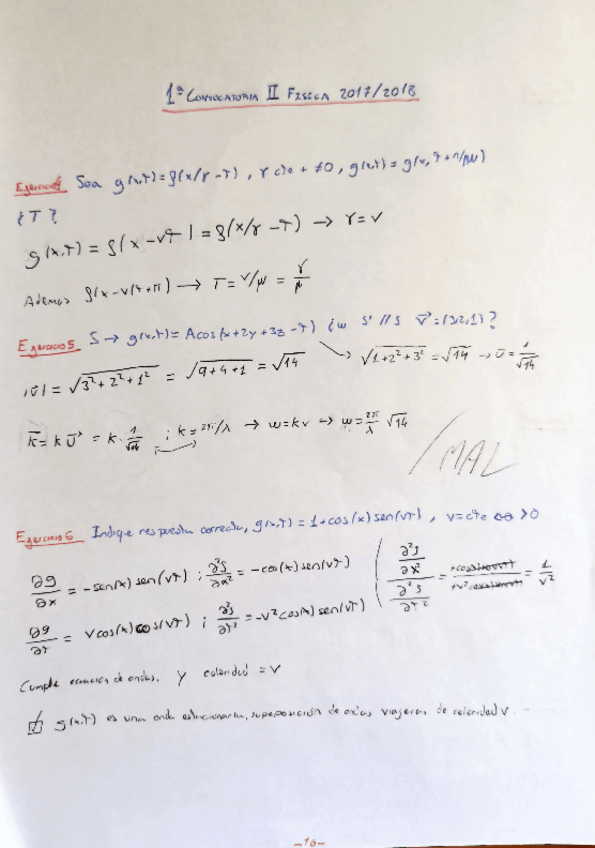 1ª CONVOCATORIA II FÍSICA 2017/2018
Ejercicio 4 Sea g(x,t) = f(x/γ - t), γ cte + ≠0, g(x,t) = g(x, t + n/μ)
¿T?
g(x,t) = f(x - vt) = f(x/γ - t) → γ = v
Además f(x - v(t + n)) → T = v/μ = γ/μ
Ejercicio 5 S → g(x,t) = A cos(x + 2y + 3z - t) ¿w S' // S v⃗ = (3,2,1)?
|v̄| = √(3² + 2² + 1²) = √(9 + 4 + 1) = √14 → √(1 + 2² + 3²) = √14 → ū = 1/√14
k̄ = k ū = k · 1/√14 ; k = 2π/λ → w = kv → w = 2π/λ √14
MAL
Ejercicio 6 Indique respuesta correcta, g(x,t) = 1 + cos(x) sen(vt), v = cte > 0
∂g/∂x = -sen(x) sen(vt) ; ∂²g/∂x² = -cos(x) sen(vt)
∂g/∂t = v cos(x) cos(vt) ; ∂²g/∂t² = -v² cos(x) sen(vt)
∂²g/∂x² / ∂²g/∂t² = = 1/v²
Cumple ecuación de ondas, y celeridad = v
g(x,t) es una onda estacionaria, superposición de ondas viajeras de celeridad v.
-16-